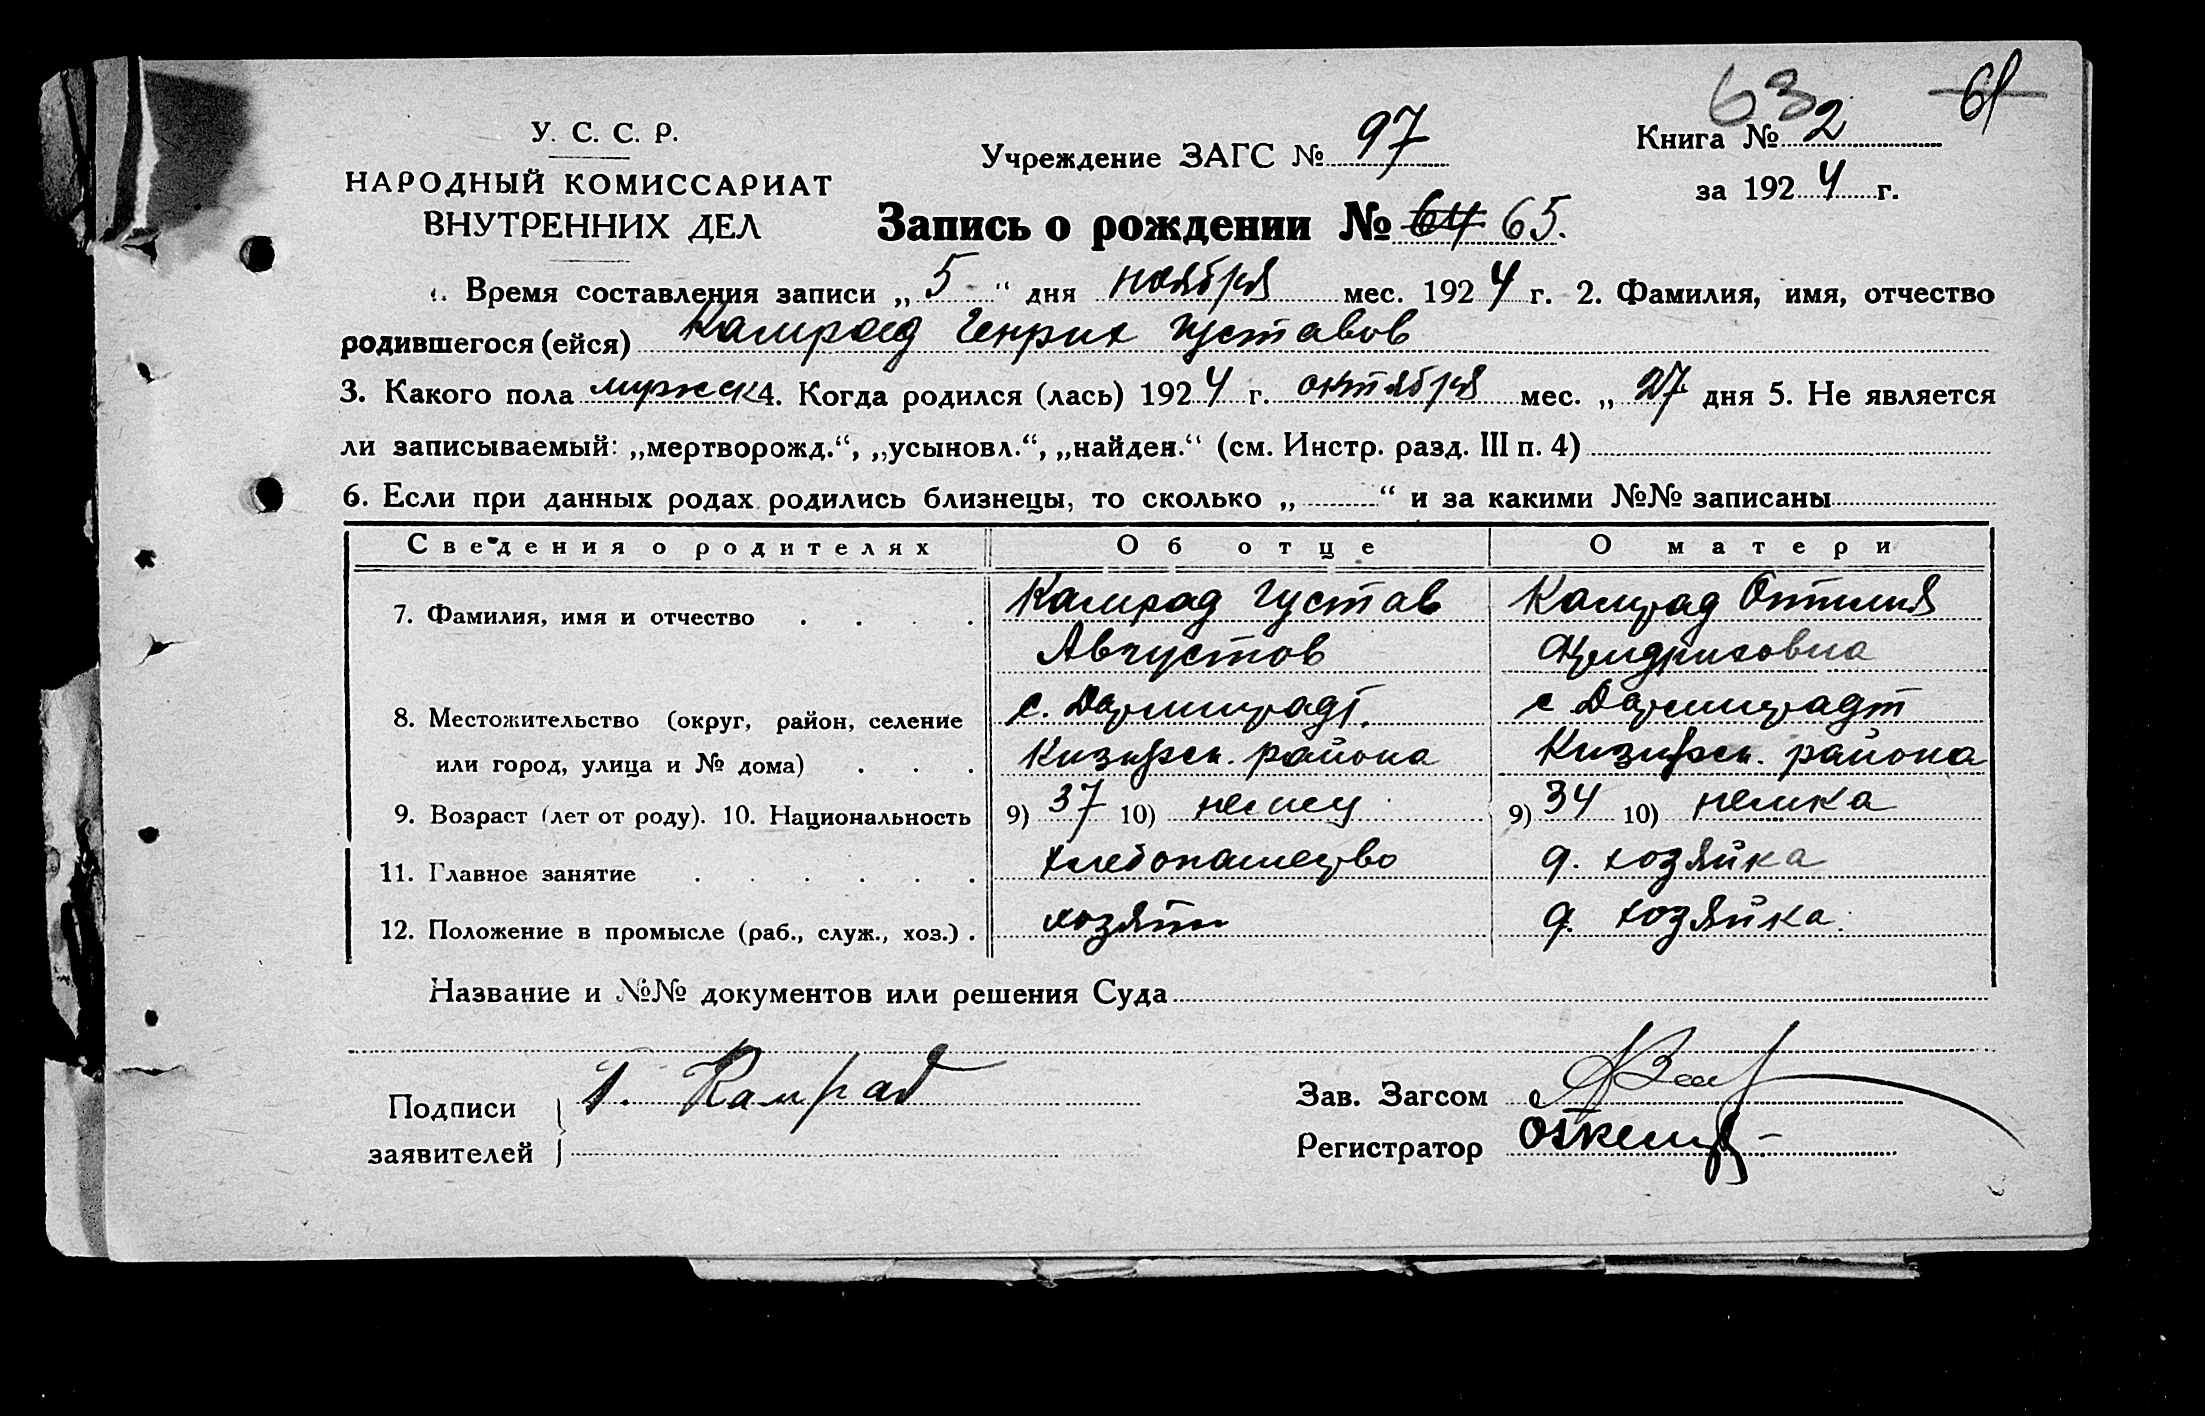 63 61
У. С. С. Р.
НАРОДНЫЙ КОМИССАРИАТ
ВНУТРЕННИХ ДЕЛ
Учреждение ЗАГС № 97
Книга № 2
за 1924 г.
Запись о рождении № 64 65.
1. Время составления записи „ 5 “ дня ноября мес. 1924 г. 2. Фамилия, имя, отчество
родившегося (ейся) Камрад Генрих Густавов
3. Какого пола мужск 4. Когда родился (лась) 1924 г. октября мес. „ 27 дня 5. Не является
ли записываемый: „мертворожд.“, „усыновл.“, „найден.“ (см. Инстр. разд. III п. 4)
6. Если при данных родах родились близнецы, то сколько „ “ и за какими №№ записаны
Сведения о родителях Об отце О матери
7. Фамилия, имя и отчество Камрад Густав Камрад Отилия
Августов
8. Местожительство (округ, район, селение с. Дармштадт. с Дармштадт
или город, улица и № дома) района района
9. Возраст (лет от роду). 10. Национальность 9) 37 10) немец 9) 34 10) немка
11. Главное занятие хлебопашество д. хозяйка
12. Положение в промысле (раб., служ., хоз.) хозяин д. хозяйка.
Название и №№ документов или решения Суда
Подписи заявителей Г. Камрад
Зав. Загсом
Регистратор